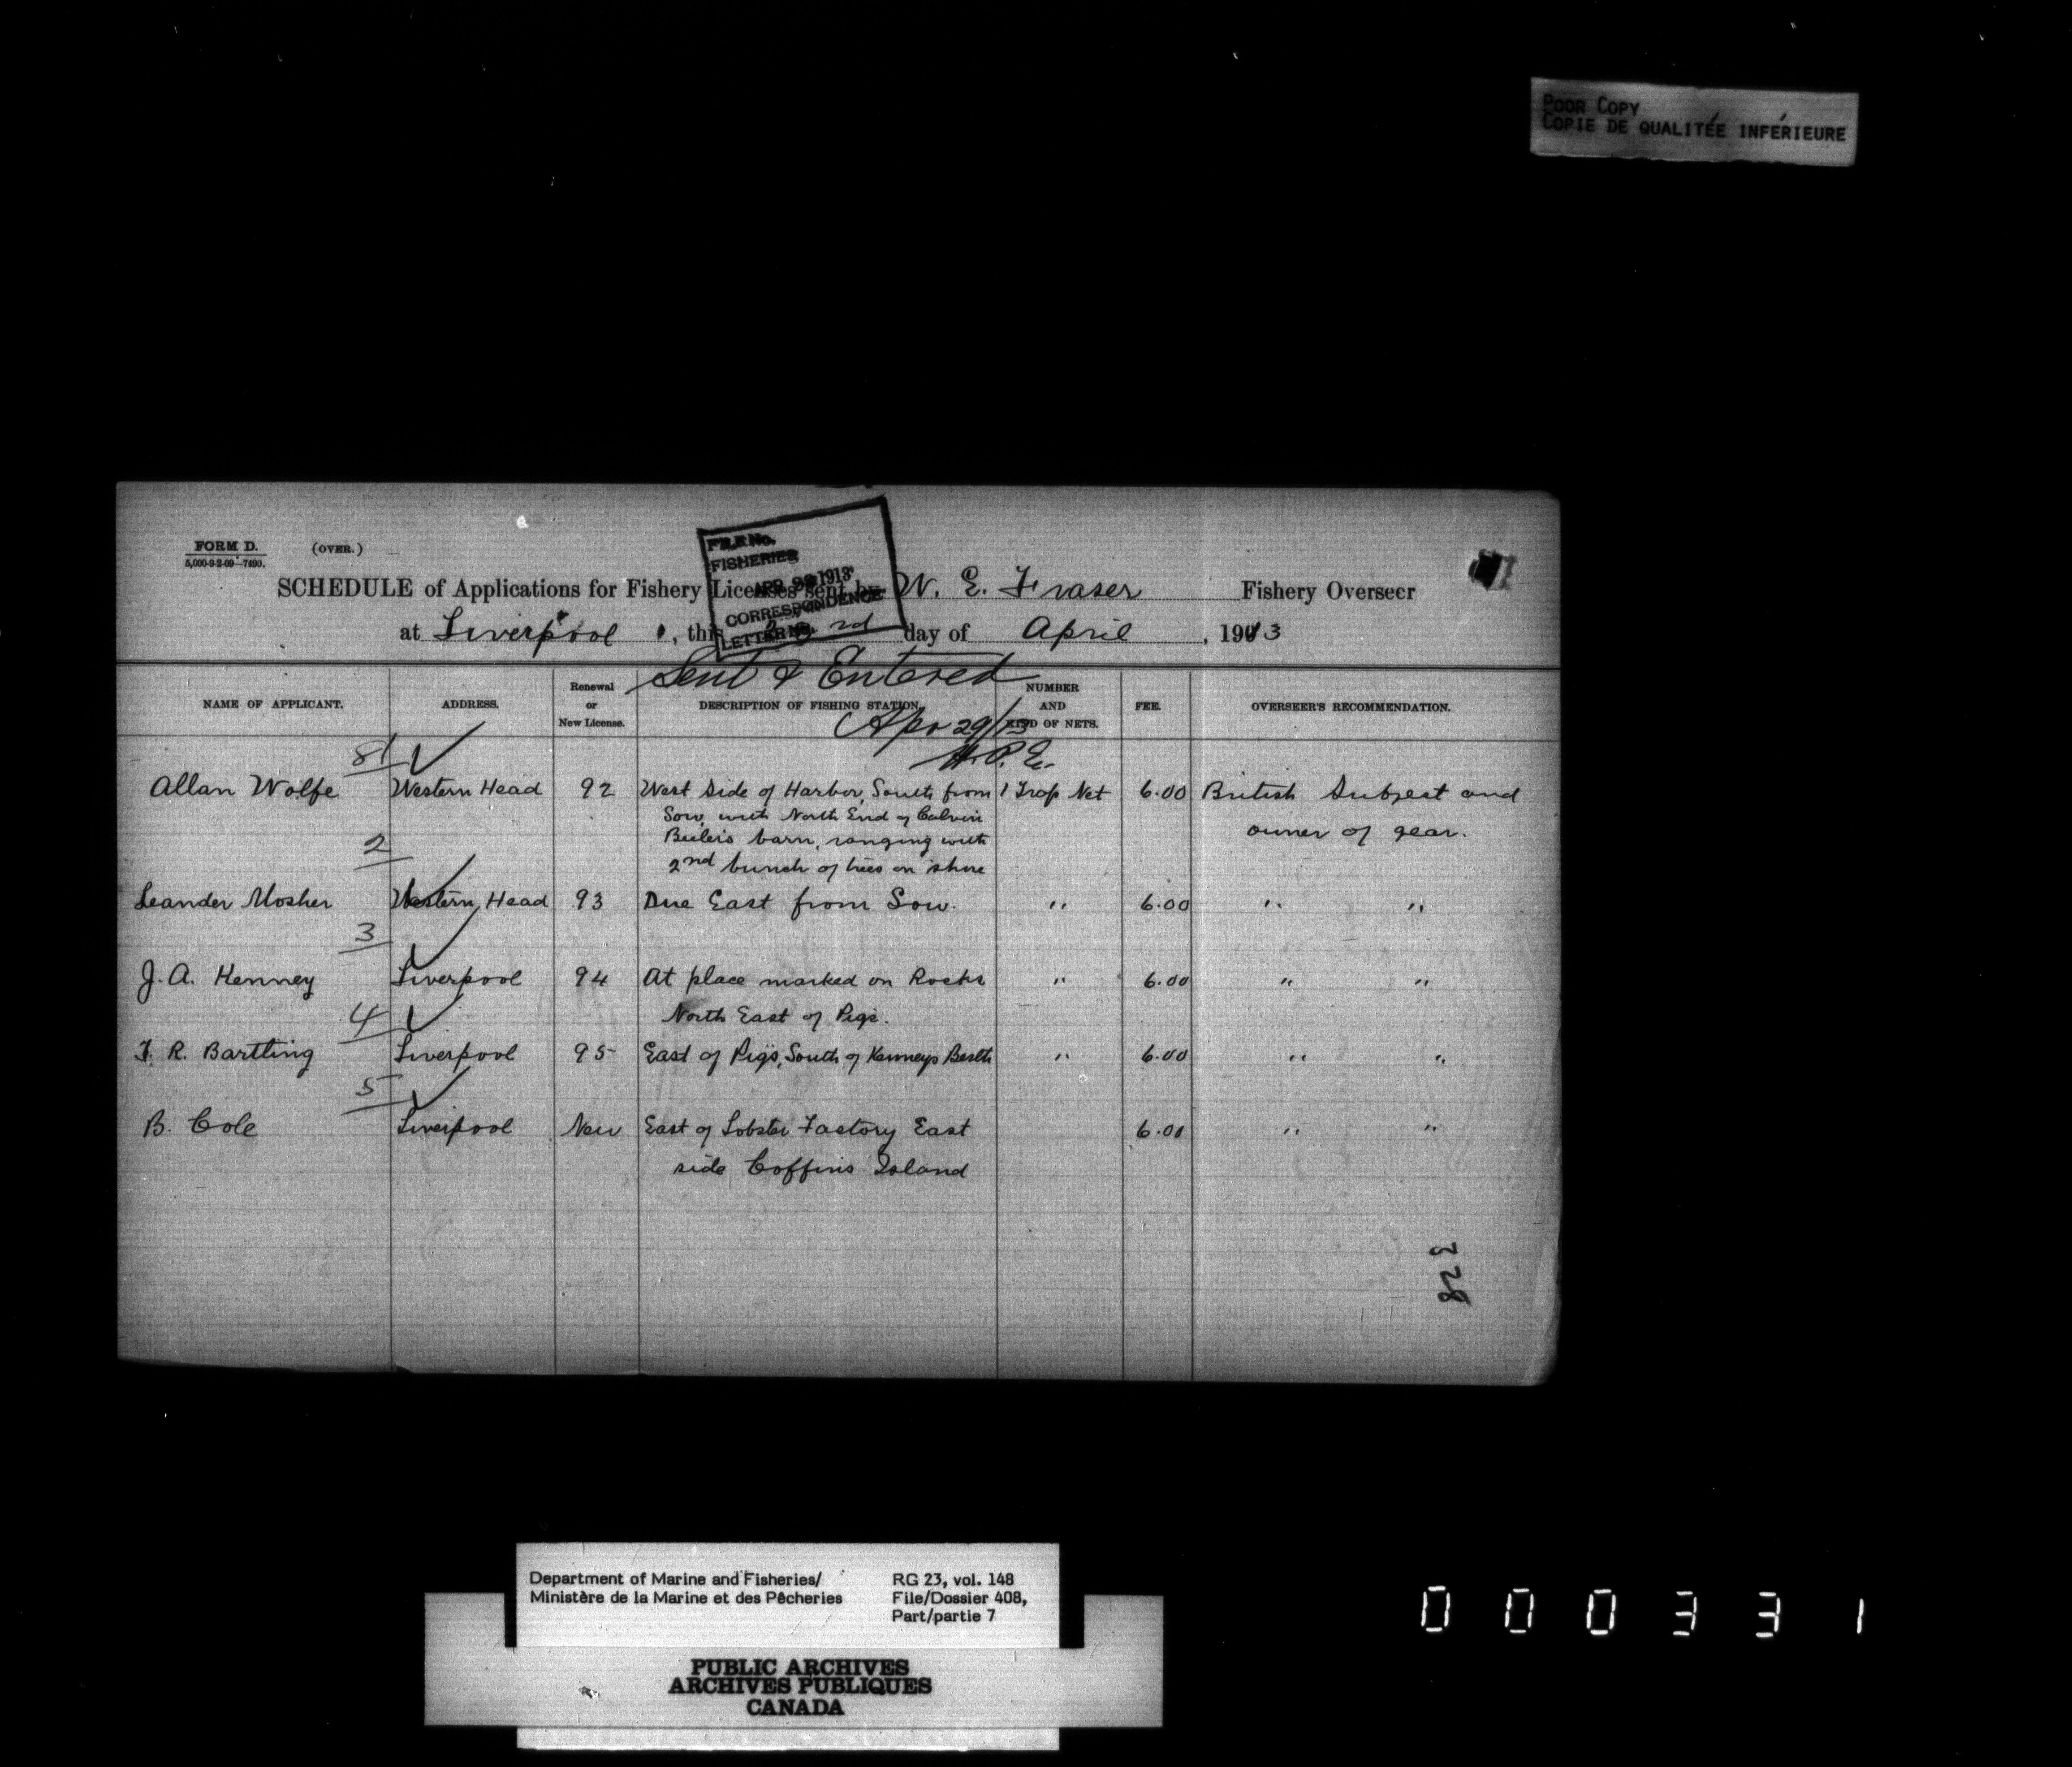 POOR COPY
COPIE DE QUALITÉE INFÉRIEURE
FORM D. (OVER.)
5,000-9-2-09—7490.
FILE No.
FISHERIES
APR 1913
CORRESPONDENCE
LETTER No.
SCHEDULE of Applications for Fishery Licenses sent by W. E. Fraser Fishery Overseer
at Liverpool, this rd day of April, 1913
Sent & Entered
Apr 29/13
H.P.E.
NAME OF APPLICANT. ADDRESS. Renewal or New License. DESCRIPTION OF FISHING STATION. NUMBER AND KIND OF NETS. FEE. OVERSEER'S RECOMMENDATION.
81 ✓
Allan Wolfe Western Head 92 West Side of Harbor, South from 1 Trap Net 6.00 British Subject and
Sow, with North End of Calvin owner of gear.
barn, ranging with
2nd bunch of trees on shore
2 ✓
Leander Mosher Western Head 93 Due East from Sow. " 6.00 " "
3 ✓
J. A. Kenney Liverpool 94 At place marked on Rocks " 6.00 " "
North East of Pigs.
4 ✓
F. R. Bartling Liverpool 95 East of Pigs, South of Kenneys Berth " 6.00 " "
5 ✓
B. Cole Liverpool New East of Lobster Factory East 6.00 " "
side Coffins Island
328
Department of Marine and Fisheries/ RG 23, vol. 148
Ministère de la Marine et des Pêcheries File/Dossier 408,
Part/partie 7
PUBLIC ARCHIVES
ARCHIVES PUBLIQUES
CANADA
000331